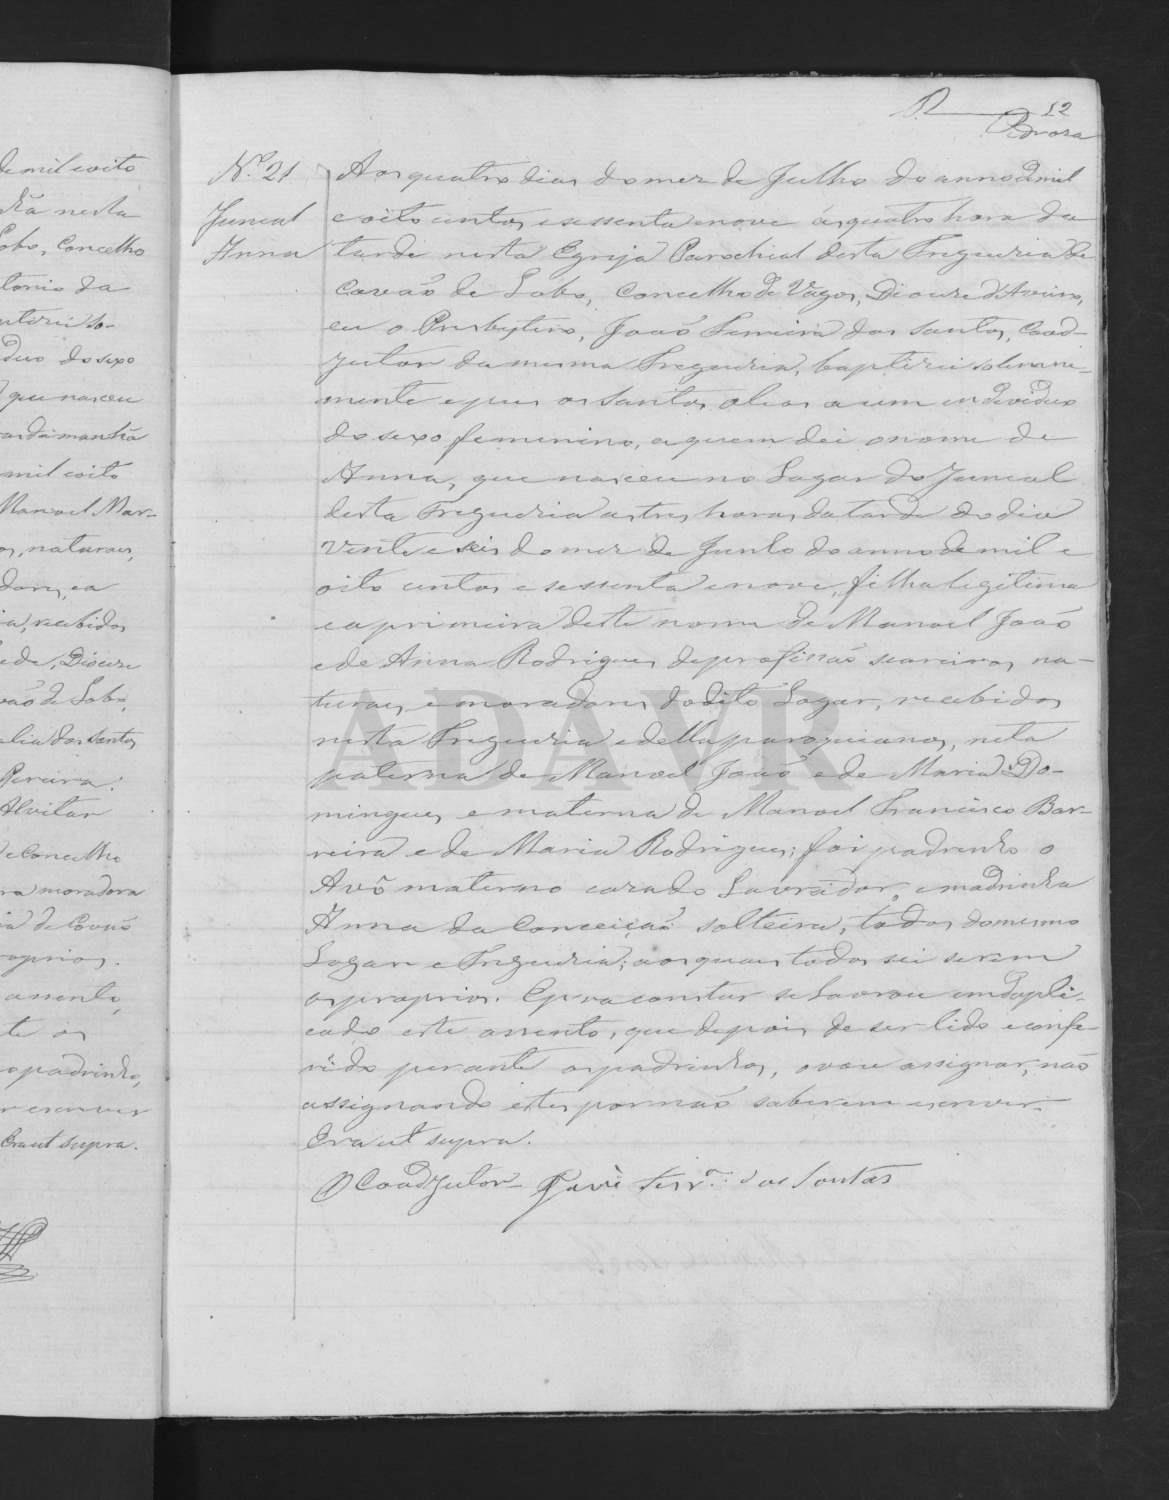 12
Nº 21
Juncal
Anna
Aos quatro dias do mez de Julho do anno de mil
e oito centos e sessenta e nove ás quatro hora da
tarde nesta Egreja Parochial desta Freguezia de
Covão de Lobo, Concelho de Vagos, Diocese d'Aveiro,
eu o Presbytero, João Ferreira dos Santos, Coad-
jutor da mesma Freguezia, baptizei solemne-
mente e puz os Santos oleos a um individuo
do sexo femenino, a quem dei o nome de
Anna, que nasceu no Logar do Juncal
desta Freguezia as tres horas da tarde do dia
vente e seis do mez de Junho do anno de mil e
oito centos e sessenta e nove, filha legitima
e a primeira deste nome de Manoel João
e de Anna Rodrigues de profissão seareiros, na-
turaes e moradores do dito Logar, recebidos
nesta Freguezia e della paroquianos, neta
paterna de Manoel João e de Maria Do-
mingues, e materna de Manoel Francisco Bar-
reira e de Maria Rodrigues; foi padrinho o
Avô materno cazado Lavrador, e madrinha
Anna da Conceição solteira, todos do mesmo
Logar e Freguezia; aos quaes todos sei serem
os proprios. E p.ra constar se lavrou em dupli-
cado este assento, que depois de ser lido e confe-
rido perante os padrinhos, o vou assignar, não
assignando estes por não saberem escrever.
Era ut supra.
O Coadjutor João Ferr.ª dos Santos
ADAVR
de mil e oito
nesta
Lobo, Concelho
Antonio da
do sexo
que nasceu
da manhã
mil e oito
Manoel Mar-
naturaes,
e a
recebidos
Diocese
Covão de Lobo,
dos Santos
Pereira.
Alvitar
Concelho
moradora
de Covão
proprios.
assento,
os
padrinho,
escrever
Era ut supra.